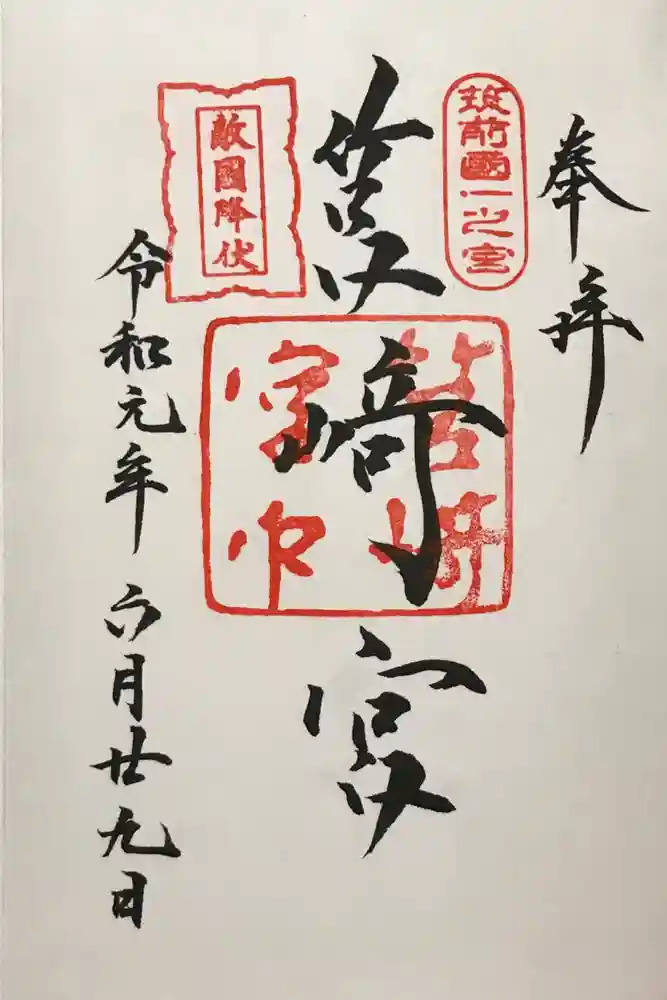 奉拝
筑前國一之宮
筥﨑宮
敵國降伏
令和元年六月廿九日